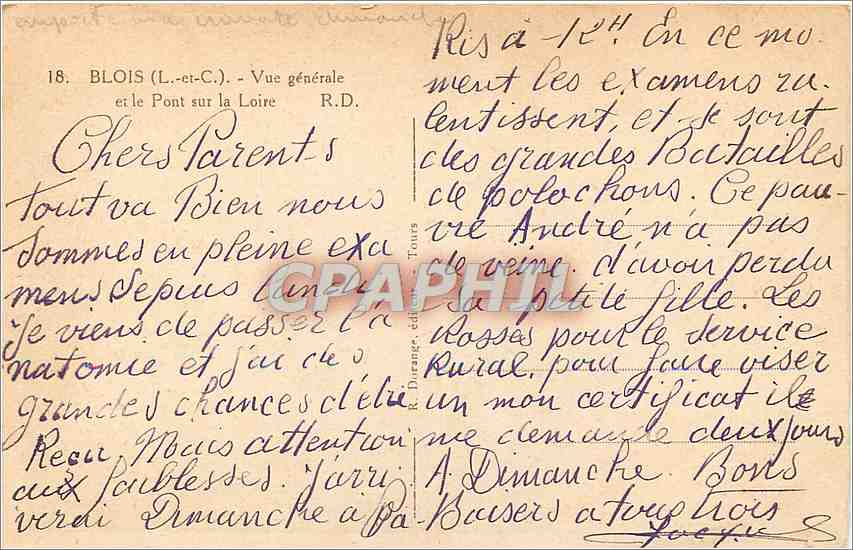 18. BLOIS (L.-et-C.). - Vue générale
et le Pont sur la Loire R.D.
Chers Parents
tout va Bien nous
sommes en pleine exa
mens depuis lundi
je viens de passer l'a
natomie et j'ai des
grandes chances d'être
Reçu. Mais attention
aux faiblesses. J'arri
verai Dimanche à Pa-
R. Dorange, éditeur - Tours
Ris à 12H. En ce mo-
ment les examens ra-
lentissent, et se sont
des grandes Batailles
de polochons. Ce pau-
vre André n'a pas
de veine d'avoir perdu
sa petite fille. Les
Rosses pour le Service
Rural, pour faire viser
un mon certificat ils
me demande deux jours
A Dimanche. Bons
Baisers a tous trois
CPAPHIL